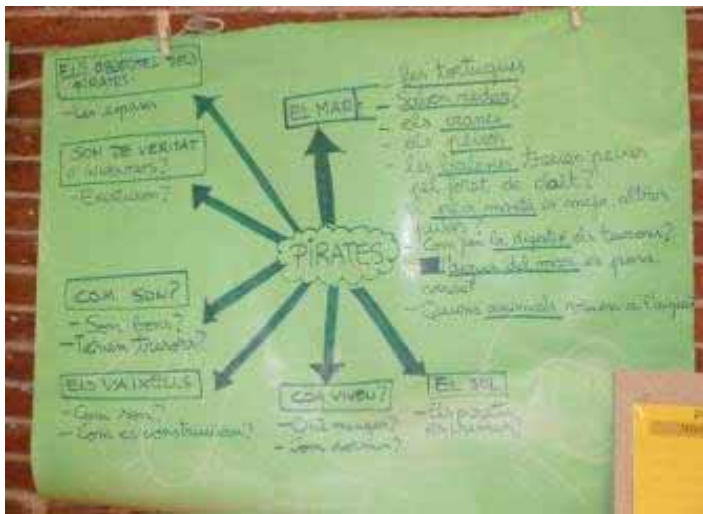 ELS OBJECTES DELS
PIRATES:
- Les espases
SON DE VERITAT
O INVENTATS?
- Existeixen?
COM SON?
- Son bons?
- Tenien tresors?
ELS VAIXELLS
- Com son?
- Com es construeixen?
PIRATES
COM VIVEN?
- Què mengen?
- Com dormen?
EL SOL
- Els pirates
es cremen?
EL MAR
- les tortugues
- Saben nedar?
- els crancs
- els peixos
les balenes treuen
pel forat de dalt?
es menja altres
peixos
- Com fan la digestió els taurons?
l'aigua del mar es pura
- Quins animals viuen a l'aigua?